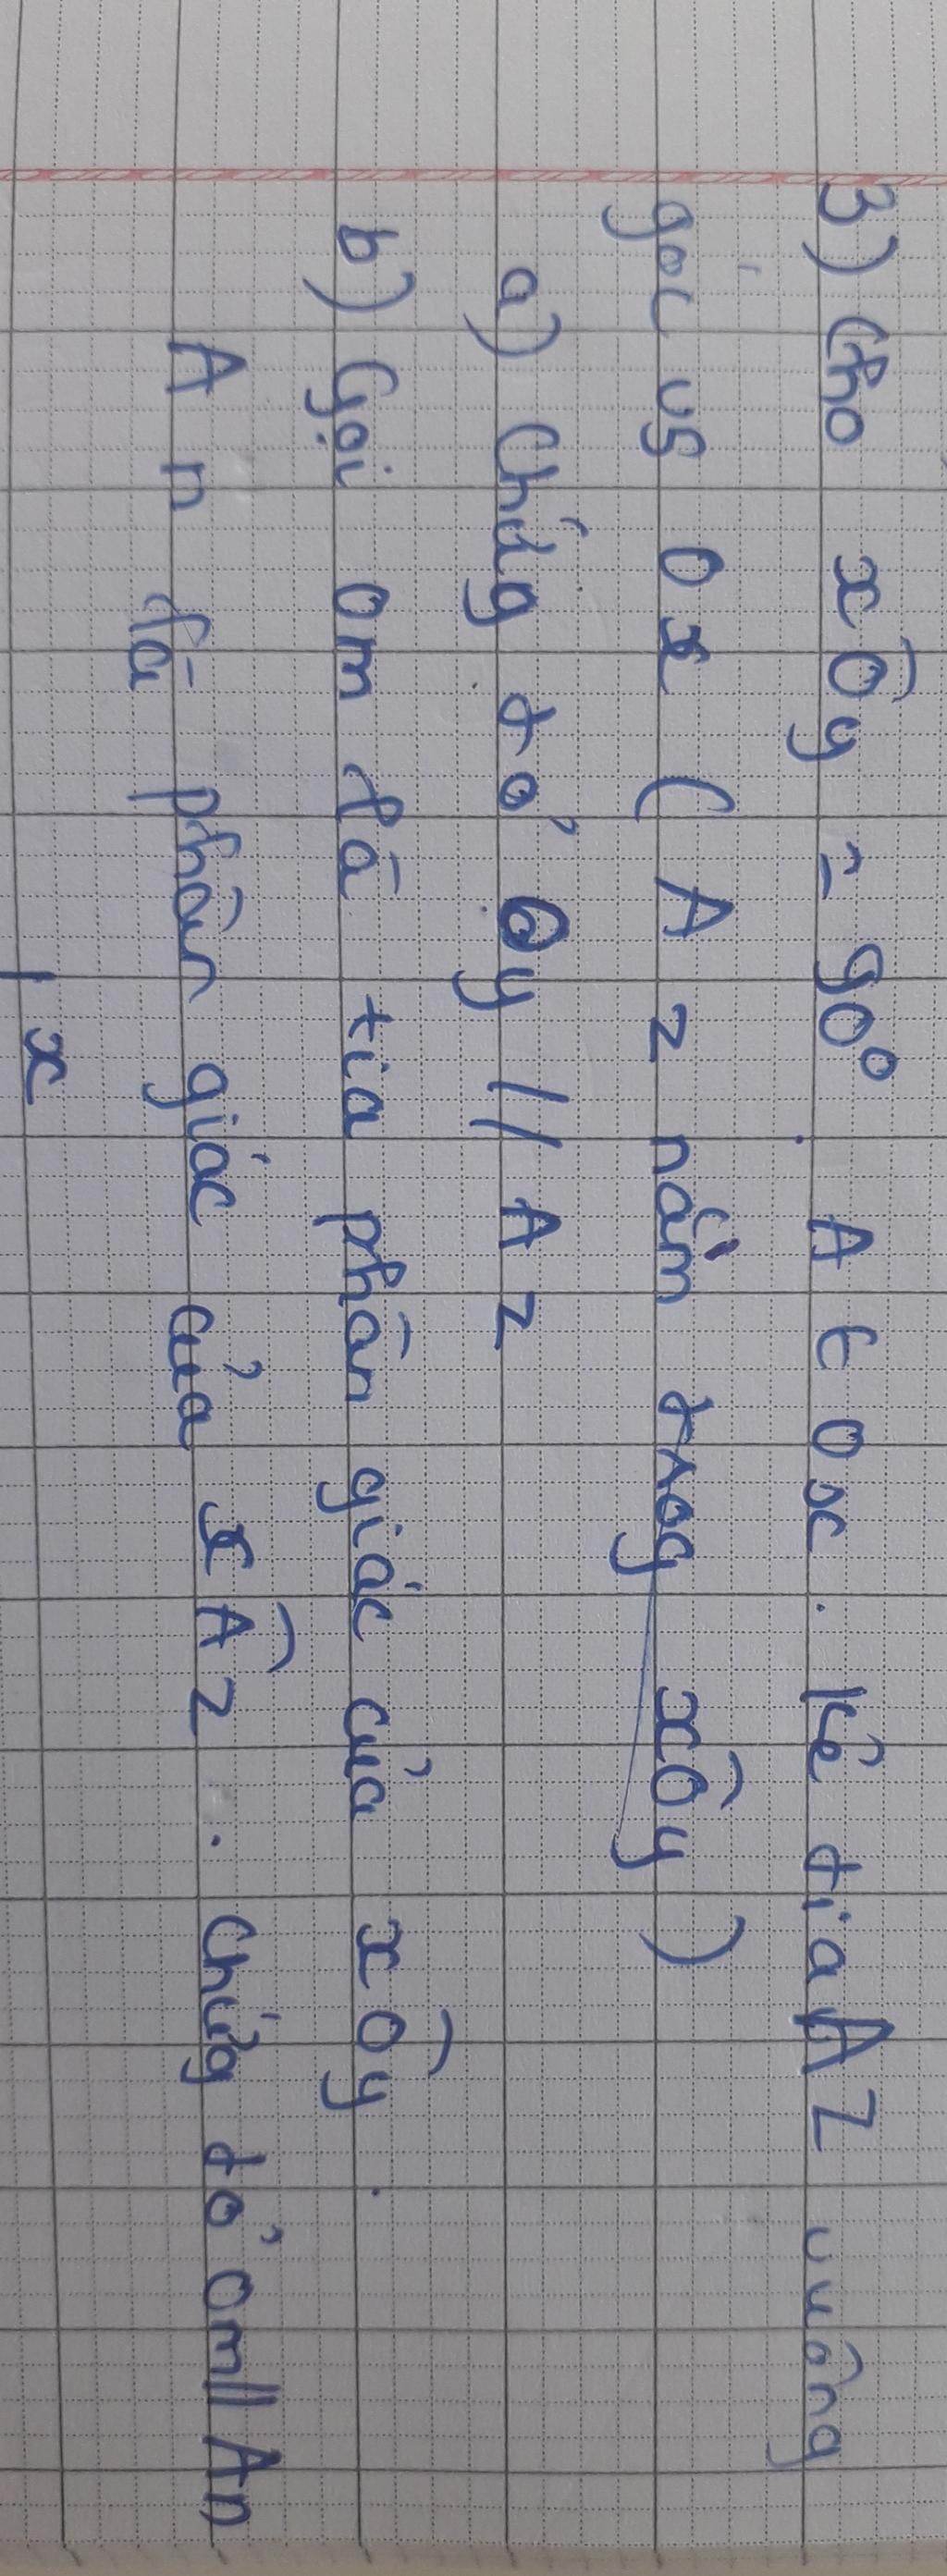 3) Cho xÔy = 90°. A ∈ Ox. Kẻ tia Az vuông
góc vs Ox (Az nằm trog xÔy)
a) Chứg tỏ Oy // Az
b) Gọi Om là tia phân giác của xÔy.
An là phân giác của xÂz. Chứg tỏ Om // An
x